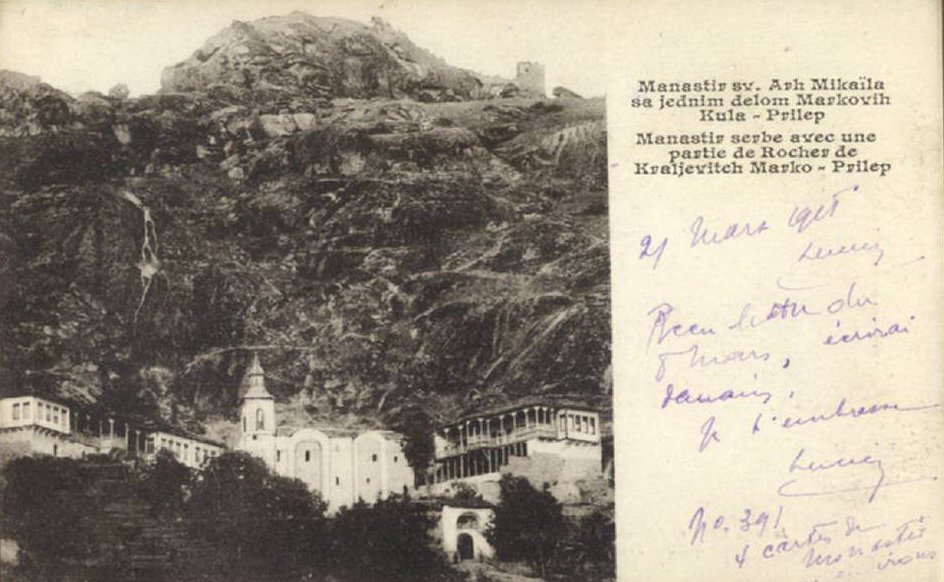 Manastir sv. Arh Mikaïla
sa jednim delom Markovih
Kula - Prilep
Manastir serbe avec une
partie de Rocher de
Kraljevitch Marko - Prilep
21 Mars
Lucien
Reçu lettre du
8 mars, écrirai
demain,
Je t'embrasse
Lucien
No. 391
4 cartes de
Monastir